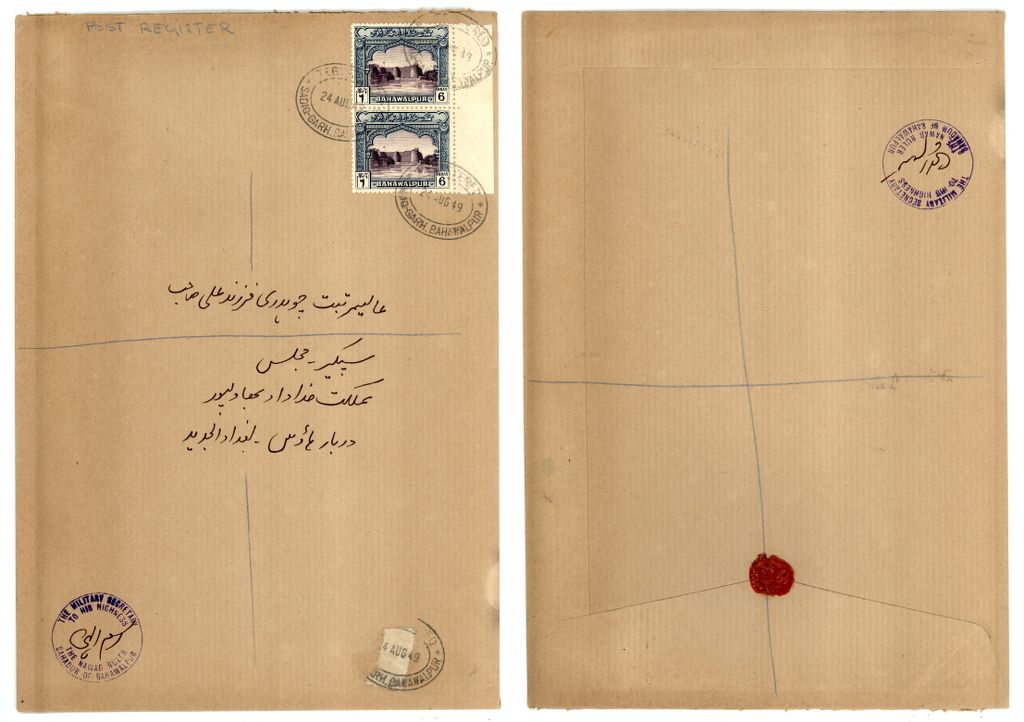 POST REGISTER
BAHAWALPUR
6
ANNAS
BAHAWALPUR
6
ANNAS
24 AUG
SADIQ-GARH. BA
24 AUG 49
-GARH. BAHAWALPUR *
عالیمرتبت چوہدری فرزند علی صاحب
سپیکر - مجلس
مملکت خداداد بہاولپور
دربار ہاؤس - بغداد الجدید
THE MILITARY SECRETARY
TO HIS HIGHNESS
THE NAWAB RULER
BAHADUR OF BAHAWALPUR
4 AUG 49
RH. BAHAWALPUR *
THE MILITARY SECRETARY
TO HIS HIGHNESS
NAWAB RULER
BAHADUR OF BAHAWALPUR